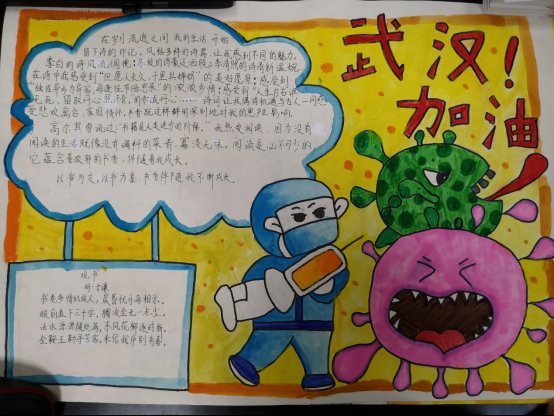 武汉!
加油
在岁月流逝之间 我的生活 开始
留下诗的印记。风格多样的诗篇 让我感到不同的魅力。
李白的诗风流倜傥;苏轼的诗豪迈洒脱;李清照的诗清新温婉。
在诗中我感受到"但愿人长久,千里共婵娟"的美好愿景;感受到
"独在异乡为异客,每逢佳节倍思亲"的浓浓乡情;感受到"人生自古谁
无死,留取丹心照汗青"的
诗词让我偶得机遇与古人一同感
受悲欢离合、家国情怀,书香就这样鲜明深刻地对我的思想影响
高尔基曾说过:"书籍是人类进步的阶梯。"我热爱阅读,因为没有
阅读的生活就像没有调料的菜肴,寡淡无味。阅读是必不可少的
它蕴含着浓郁的书香,伴随着我成长。
以书为友,以书为基 书香伴随我不断成长。
观书
明·于谦
书卷多情似故人,晨昏忧乐每相亲。
眼前直下三千字,胸次全无一点尘。
活水源流随处满,东风花柳逐时新。
金鞍玉勒寻芳客,未信我庐别有春。